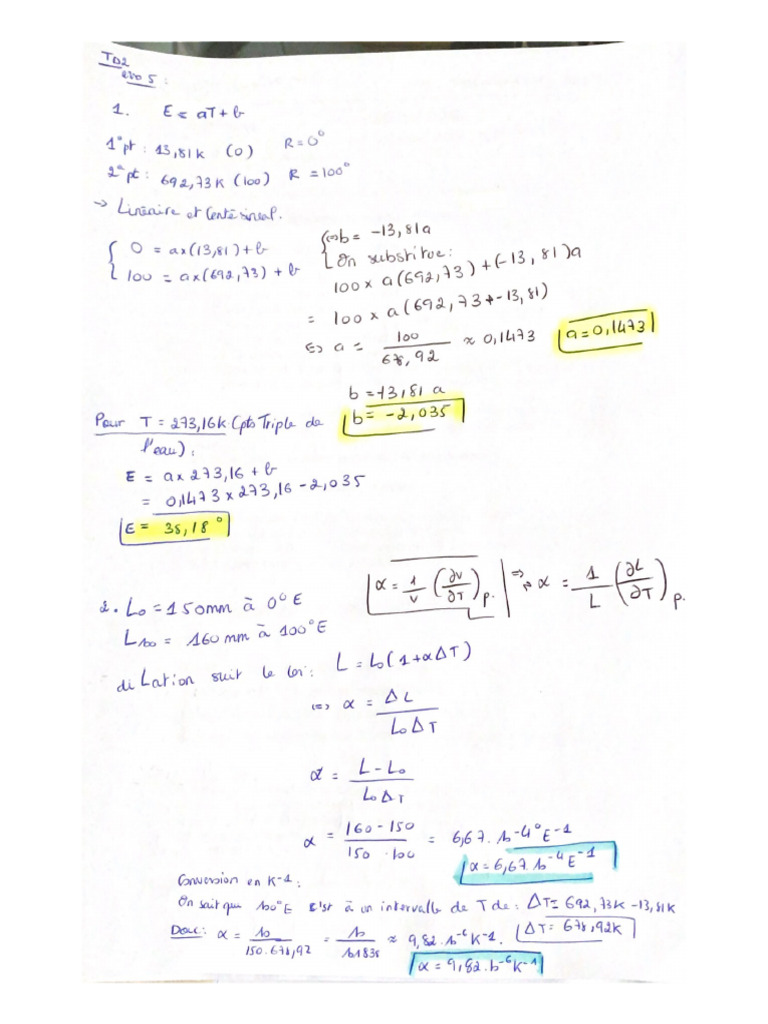 TD2
exo 5 :
1. E = aT + b
1° pt : 13,81K (0) R = 0°
2° pt : 692,73K (100) R = 100°
→ Linéaire et Centésimal.
{ 0 = a×(13,81) + b
100 = a×(692,73) + b
{ ⇔ b = -13,81a
On substitue :
100 × a(692,73) + (-13,81)a
= 100 × a(692,73 + -13,81)
⇔ a = 100/678,92 ≈ 0,1473 a = 0,1473
b = -13,81 a
b = -2,035
Pour T = 273,16K (pts Triple de
l'eau) :
E = a×273,16 + b
= 0,1473 × 273,16 - 2,035
E = 38,18°
α = 1/V (∂V/∂T)p. ⇒ α = 1/L (∂L/∂T)p.
2. L0 = 150mm à 0°E
L100 = 160 mm à 100°E
diLation suit le loi : L = L0(1 + αΔT)
⇔ α = ΔL/L0ΔT
α = L - L0/L0ΔT
α = 160 - 150/150 . 100 = 6,67. 10-4°E-1
α = 6,67 10-4E-1
Conversion en K-1 :
On sait que 100°E c'est à un intervalle de T de : ΔT = 692,73K - 13,81K
Donc : α = 10/150.678,92 = 10/101838 ≈ 9,82.10-6K-1. ΔT = 678,92K
α = 9,82.10-6K-1